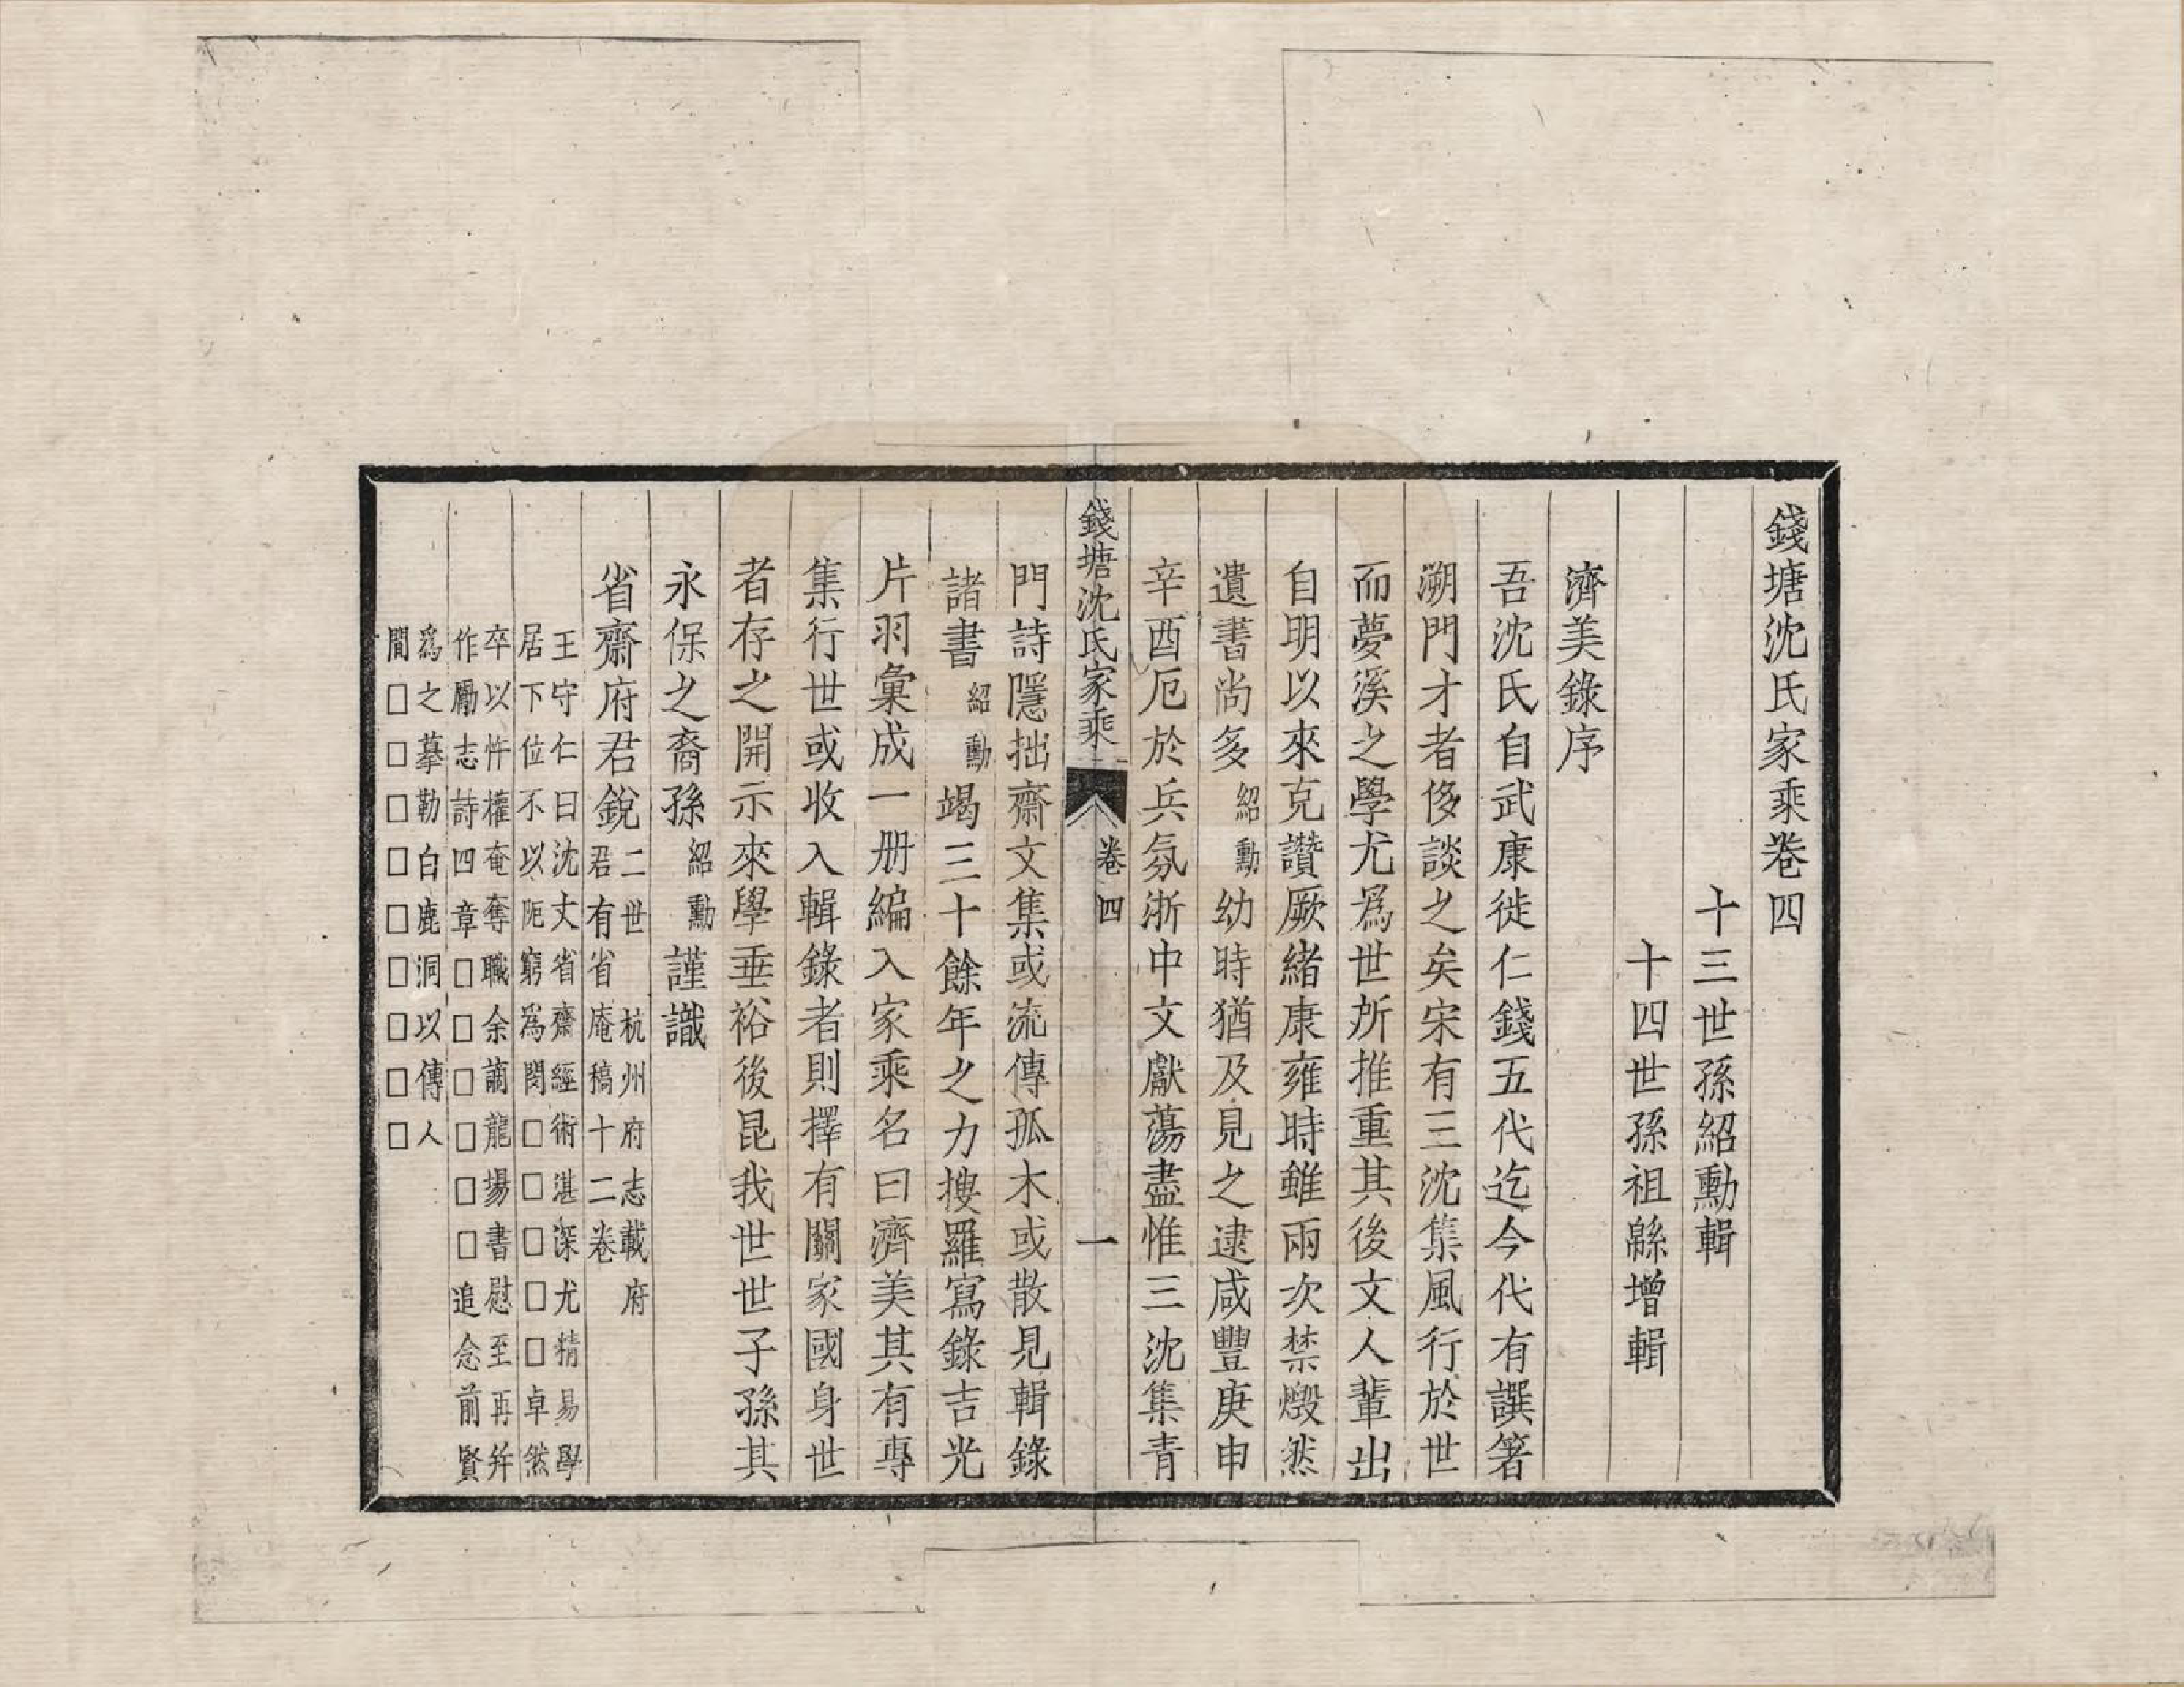 錢塘沈氏家乘卷四
十三世孫紹勳輯
十四世孫祖緜增輯
濟美錄序
吾沈氏自武康徙仁錢五代迄今代有譔箸
溯門才者侈談之矣宋有三沈集風行於世
而夢溪之學尤爲世所推重其後文人輩出
自明以來克讚厥緒康雍時雖兩次禁燬然
遺書尚多紹勳幼時猶及見之逮咸豐庚申
辛酉厄於兵氛浙中文獻蕩盡惟三沈集青
錢塘沈氏家乘 卷四 一
門詩隱拙齋文集或流傳孤木或散見輯錄
諸書紹勳竭三十餘年之力搜羅寫錄吉光
片羽彙成一册編入家乘名曰濟美其有專
集行世或收入輯錄者則擇有關家國身世
者存之開示來學垂裕後昆我世世子孫其
永保之裔孫紹勳謹識
省齋府君銳二世 杭州府志載府
君有省庵稿十二卷
王守仁曰沈丈省齋經術湛深尤精易學
居下位不以阨窮爲閔□□□□□卓然
卒以忤權奄奪職余謫龍場書慰至再幷
作勵志詩四章□□□□□□追念前賢
爲之摹勒白鹿洞以傳人
間□□□□□□□□□